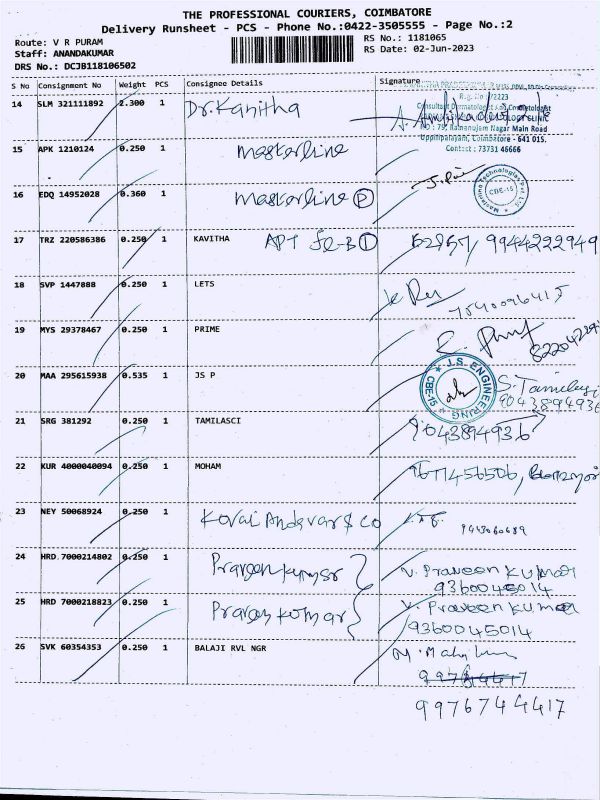 THE PROFESSIONAL COURIERS, COIMBATORE
Delivery Runsheet - PCS - Phone No.:0422-3505555 - Page No.:2
Route: V R PURAM RS No.: 1181065
Staff: ANANDAKUMAR RS Date: 02-Jun-2023
DRS No.: DCJB118106502
S No Consignment No Weight PCS Consignee Details Signature
14 SLM 321111892 2.300 1 Dr. Kanitha
Consultant Dermatologist
NO : 79, Ramanujam Nagar Main Road
Uppilipalayam, Coimbatore - 641 015.
Contact : 73731 46666
15 APK 1210124 0.250 1 Masterline
16 EDQ 14952028 0.360 1 Masterline P
Masterline Technologies Pvt. Ltd.
CBE-15
17 TRZ 220586386 0.250 1 KAVITHA 9944222949
18 SVP 1447888 0.250 1 LETS
19 MYS 29378467 0.250 1 PRIME
20 MAA 295615938 0.535 1 JS P
J.S. ENGINEERING
CBE-15
9043894936
21 SRG 381292 0.250 1 TAMILASCI 9043894936
22 KUR 4000040094 0.250 1 MOHAM 9677456506,
23 NEY 50068924 0.250 1 Kovai Andavar & Co 9443060689
24 HRD 7000214802 0.250 1 Praveen kumar V. Praveen Kumar
9360045014
25 HRD 7000218823 0.250 1 Praveen kumar V. Praveen Kumar
9360045014
26 SVK 60354353 0.250 1 BALAJI RVL NGR
9976744417